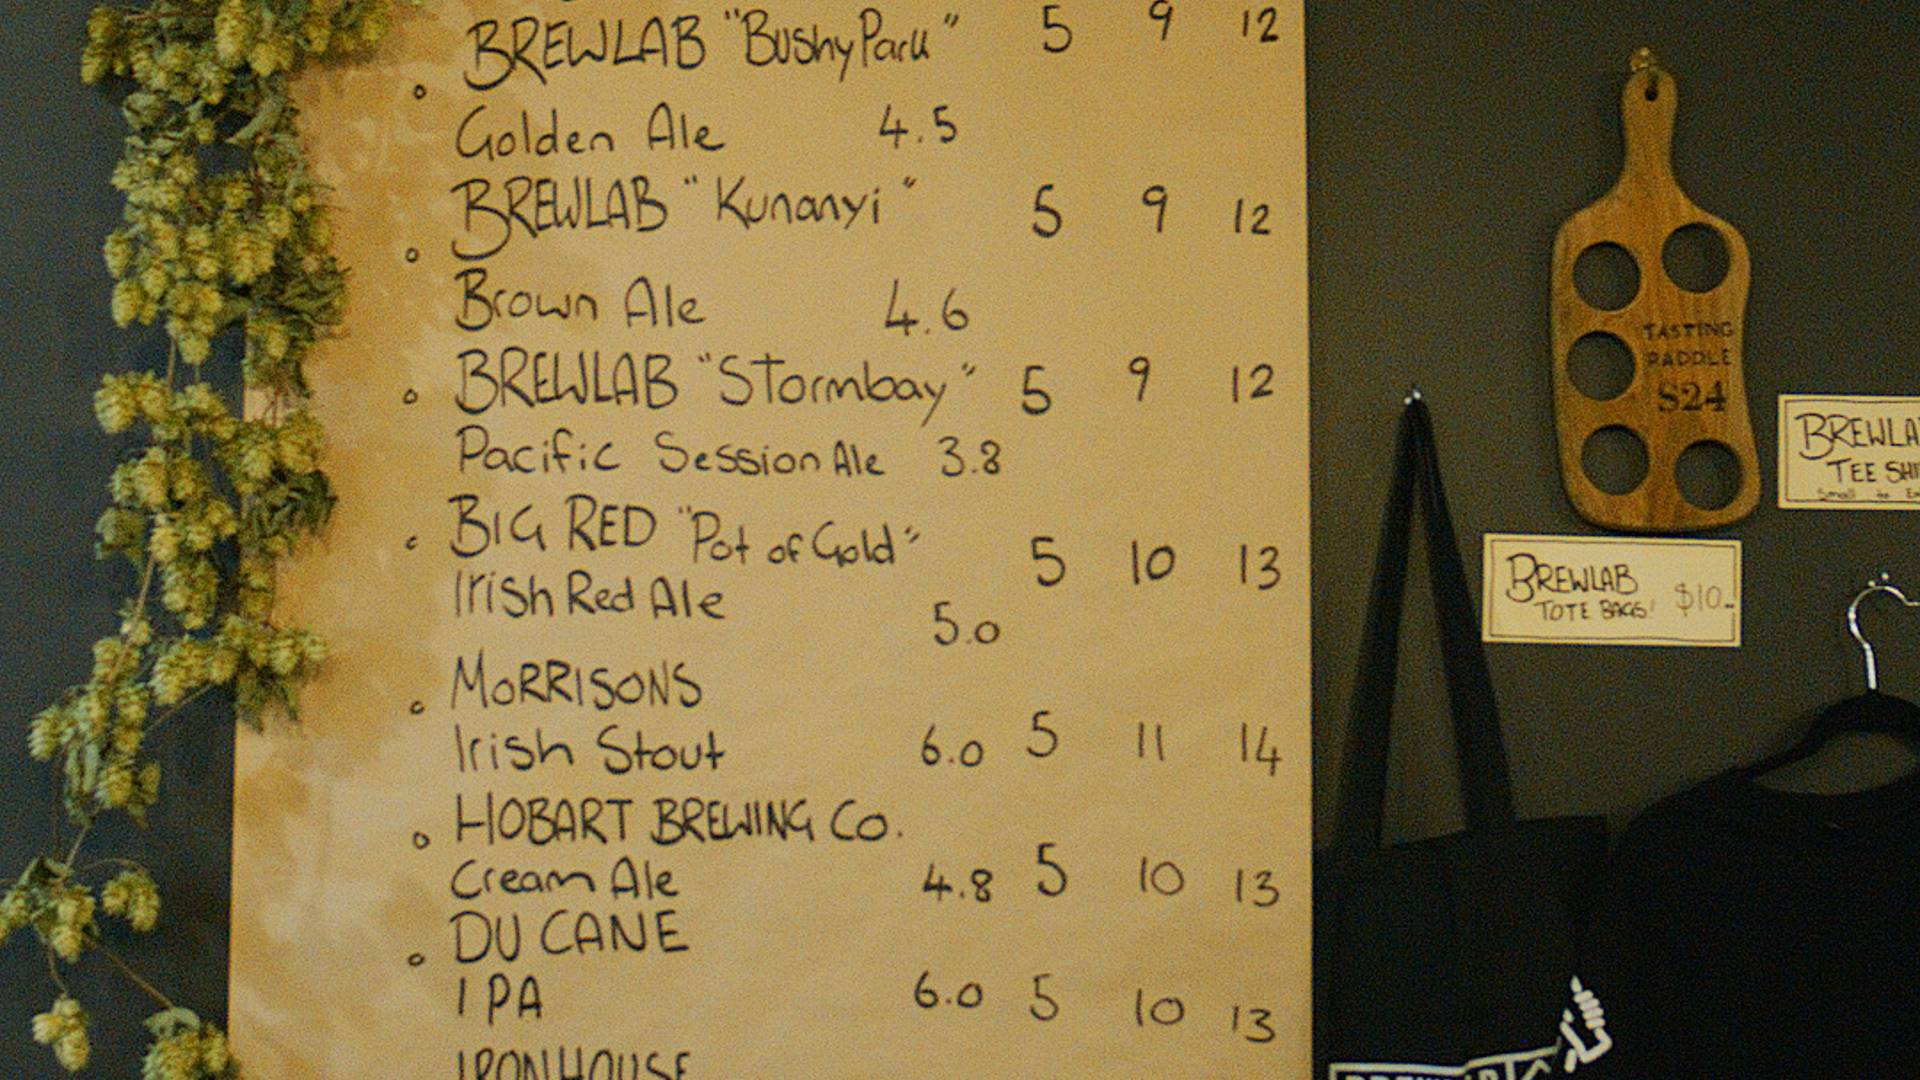 BREWLAB "Bushy Park" 5 9 12
Golden Ale 4.5
BREWLAB "Kunanyi" 5 9 12
Brown Ale 4.6
BREWLAB "Stormbay" 5 9 12
Pacific Session Ale 3.8
BIG RED "Pot of Gold" 5 10 13
Irish Red Ale 5.0
MORRISONS
Irish Stout 6.0 5 11 14
HOBART BREWING CO.
Cream Ale 4.8 5 10 13
DU CANE
IPA 6.0 5 10 13
IRONHOUSE
TASTING
PADDLE
$24
BREWLA
TEE SHI
Small to Ex
BREWLAB
TOTE BAGS! $10.-
BREWLAB